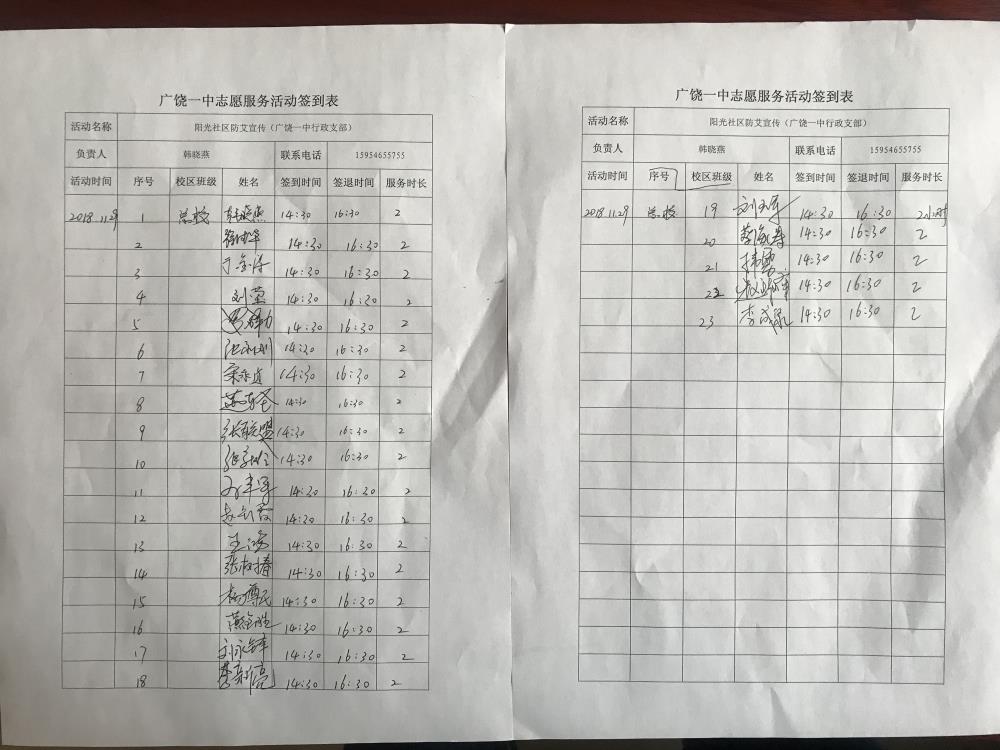 广饶一中志愿服务活动签到表
活动名称 阳光社区防艾宣传（广饶一中行政支部）
负责人 韩晓燕 联系电话 15954655755
活动时间 序号 校区班级 姓名 签到时间 签退时间 服务时长
2018.11.29 1 总校 韩晓燕 14:30 16:30 2
2 14:30 16:30 2
3 于金涛 14:30 16:30 2
4 刘莹 14:30 16:30 2
5 14:30 16:30 2
6 14:30 16:30 2
7 14:30 16:30 2
8 14:30 16:30 2
9 张联盟 14:30 16:30 2
10 14:30 16:30 2
11 14:30 16:30 2
12 14:30 16:30 2
13 14:30 16:30 2
14 张树春 14:30 16:30 2
15 杨尊民 14:30 16:30 2
16 14:30 16:30 2
17 刘永锋 14:30 16:30 2
18 李新亮 14:30 16:30 2
广饶一中志愿服务活动签到表
活动名称 阳光社区防艾宣传（广饶一中行政支部）
负责人 韩晓燕 联系电话 15954655755
活动时间 序号 校区班级 姓名 签到时间 签退时间 服务时长
2018.11.29 总校 19 14:30 16:30 2小时
20 14:30 16:30 2
21 14:30 16:30 2
22 14:30 16:30 2
23 14:30 16:30 2